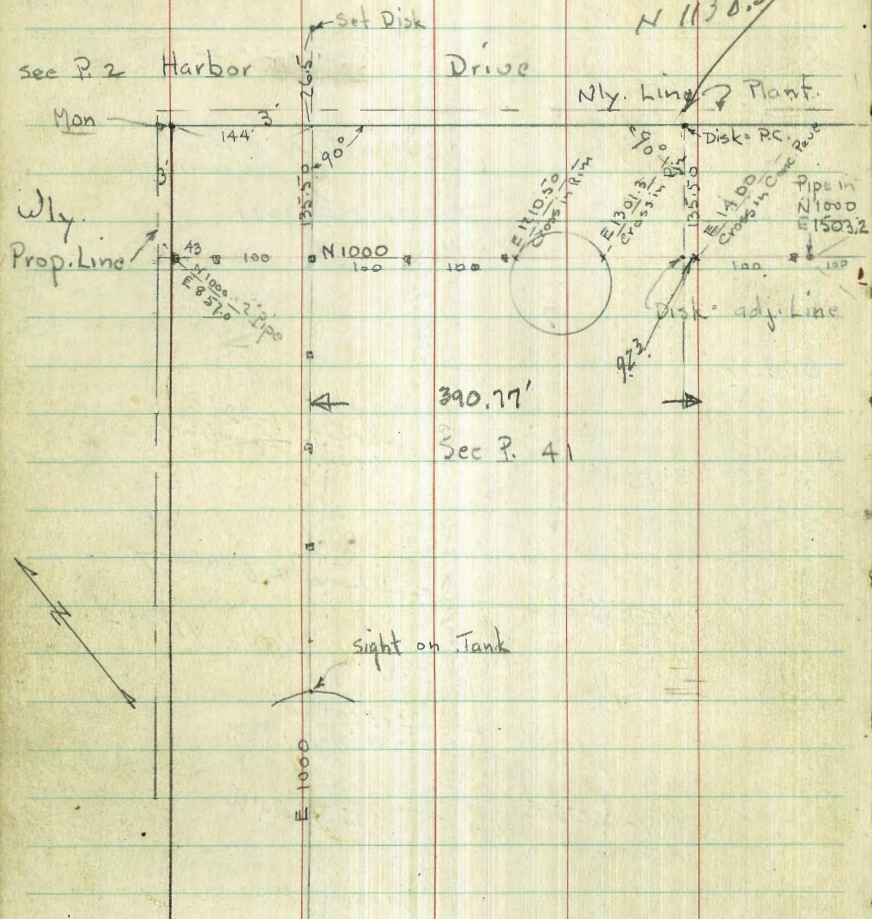 Set Disk
N 1130.
see P. 2 Harbor Drive
26.5
Nly. Line Plant.
Mon
3'
144'
90°
Disk = P.C.
90°
3'
135.50
135.50
E 1210.50
Cross in Rim
E 1301.3
Cross in Rim
E 1400
Cross in Conc Pave
Pipe in
N 1000
E 1503.2
Wly.
Prop. Line
43
100
N 1000
100
100
100
100
N 1000 - 2" Pipe
E 857.0
Disk = adj. Line
9.23
390.77'
See P. 41
N
sight on Tank
E 1000